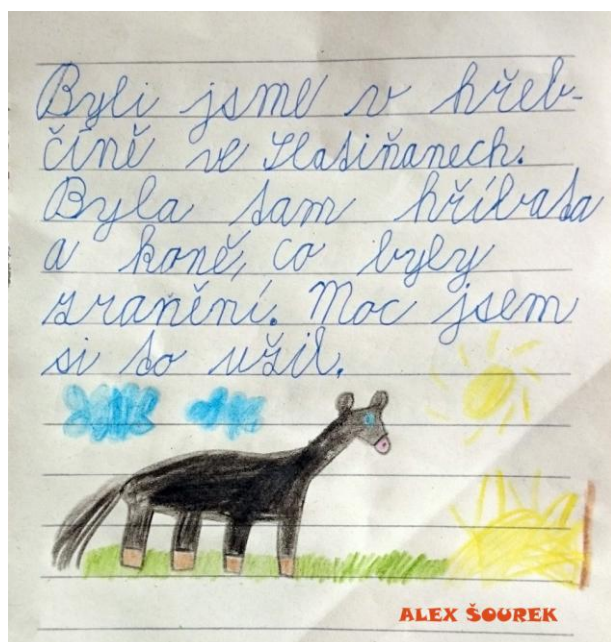 Byli jsme v hřeb-
číně ve Slatiňanech.
Byla tam hříbata
a koně, co byly
zranění. Moc jsem
si to užil.
ALEX ŠOUREK